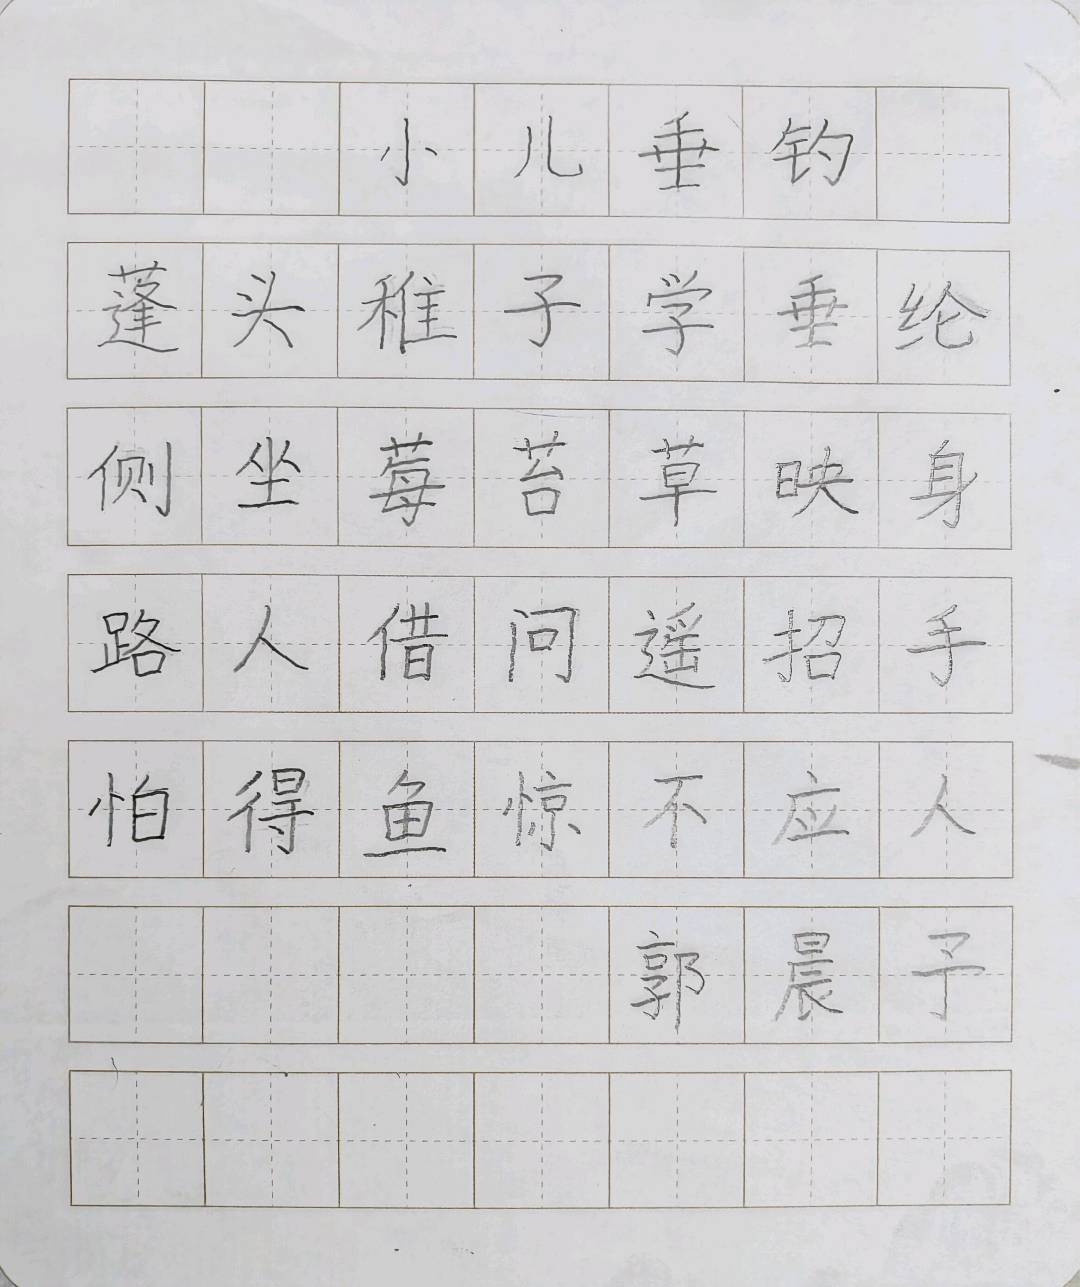 小儿垂钓
蓬头稚子学垂纶
侧坐莓苔草映身
路人借问遥招手
怕得鱼惊不应人
郭晨予